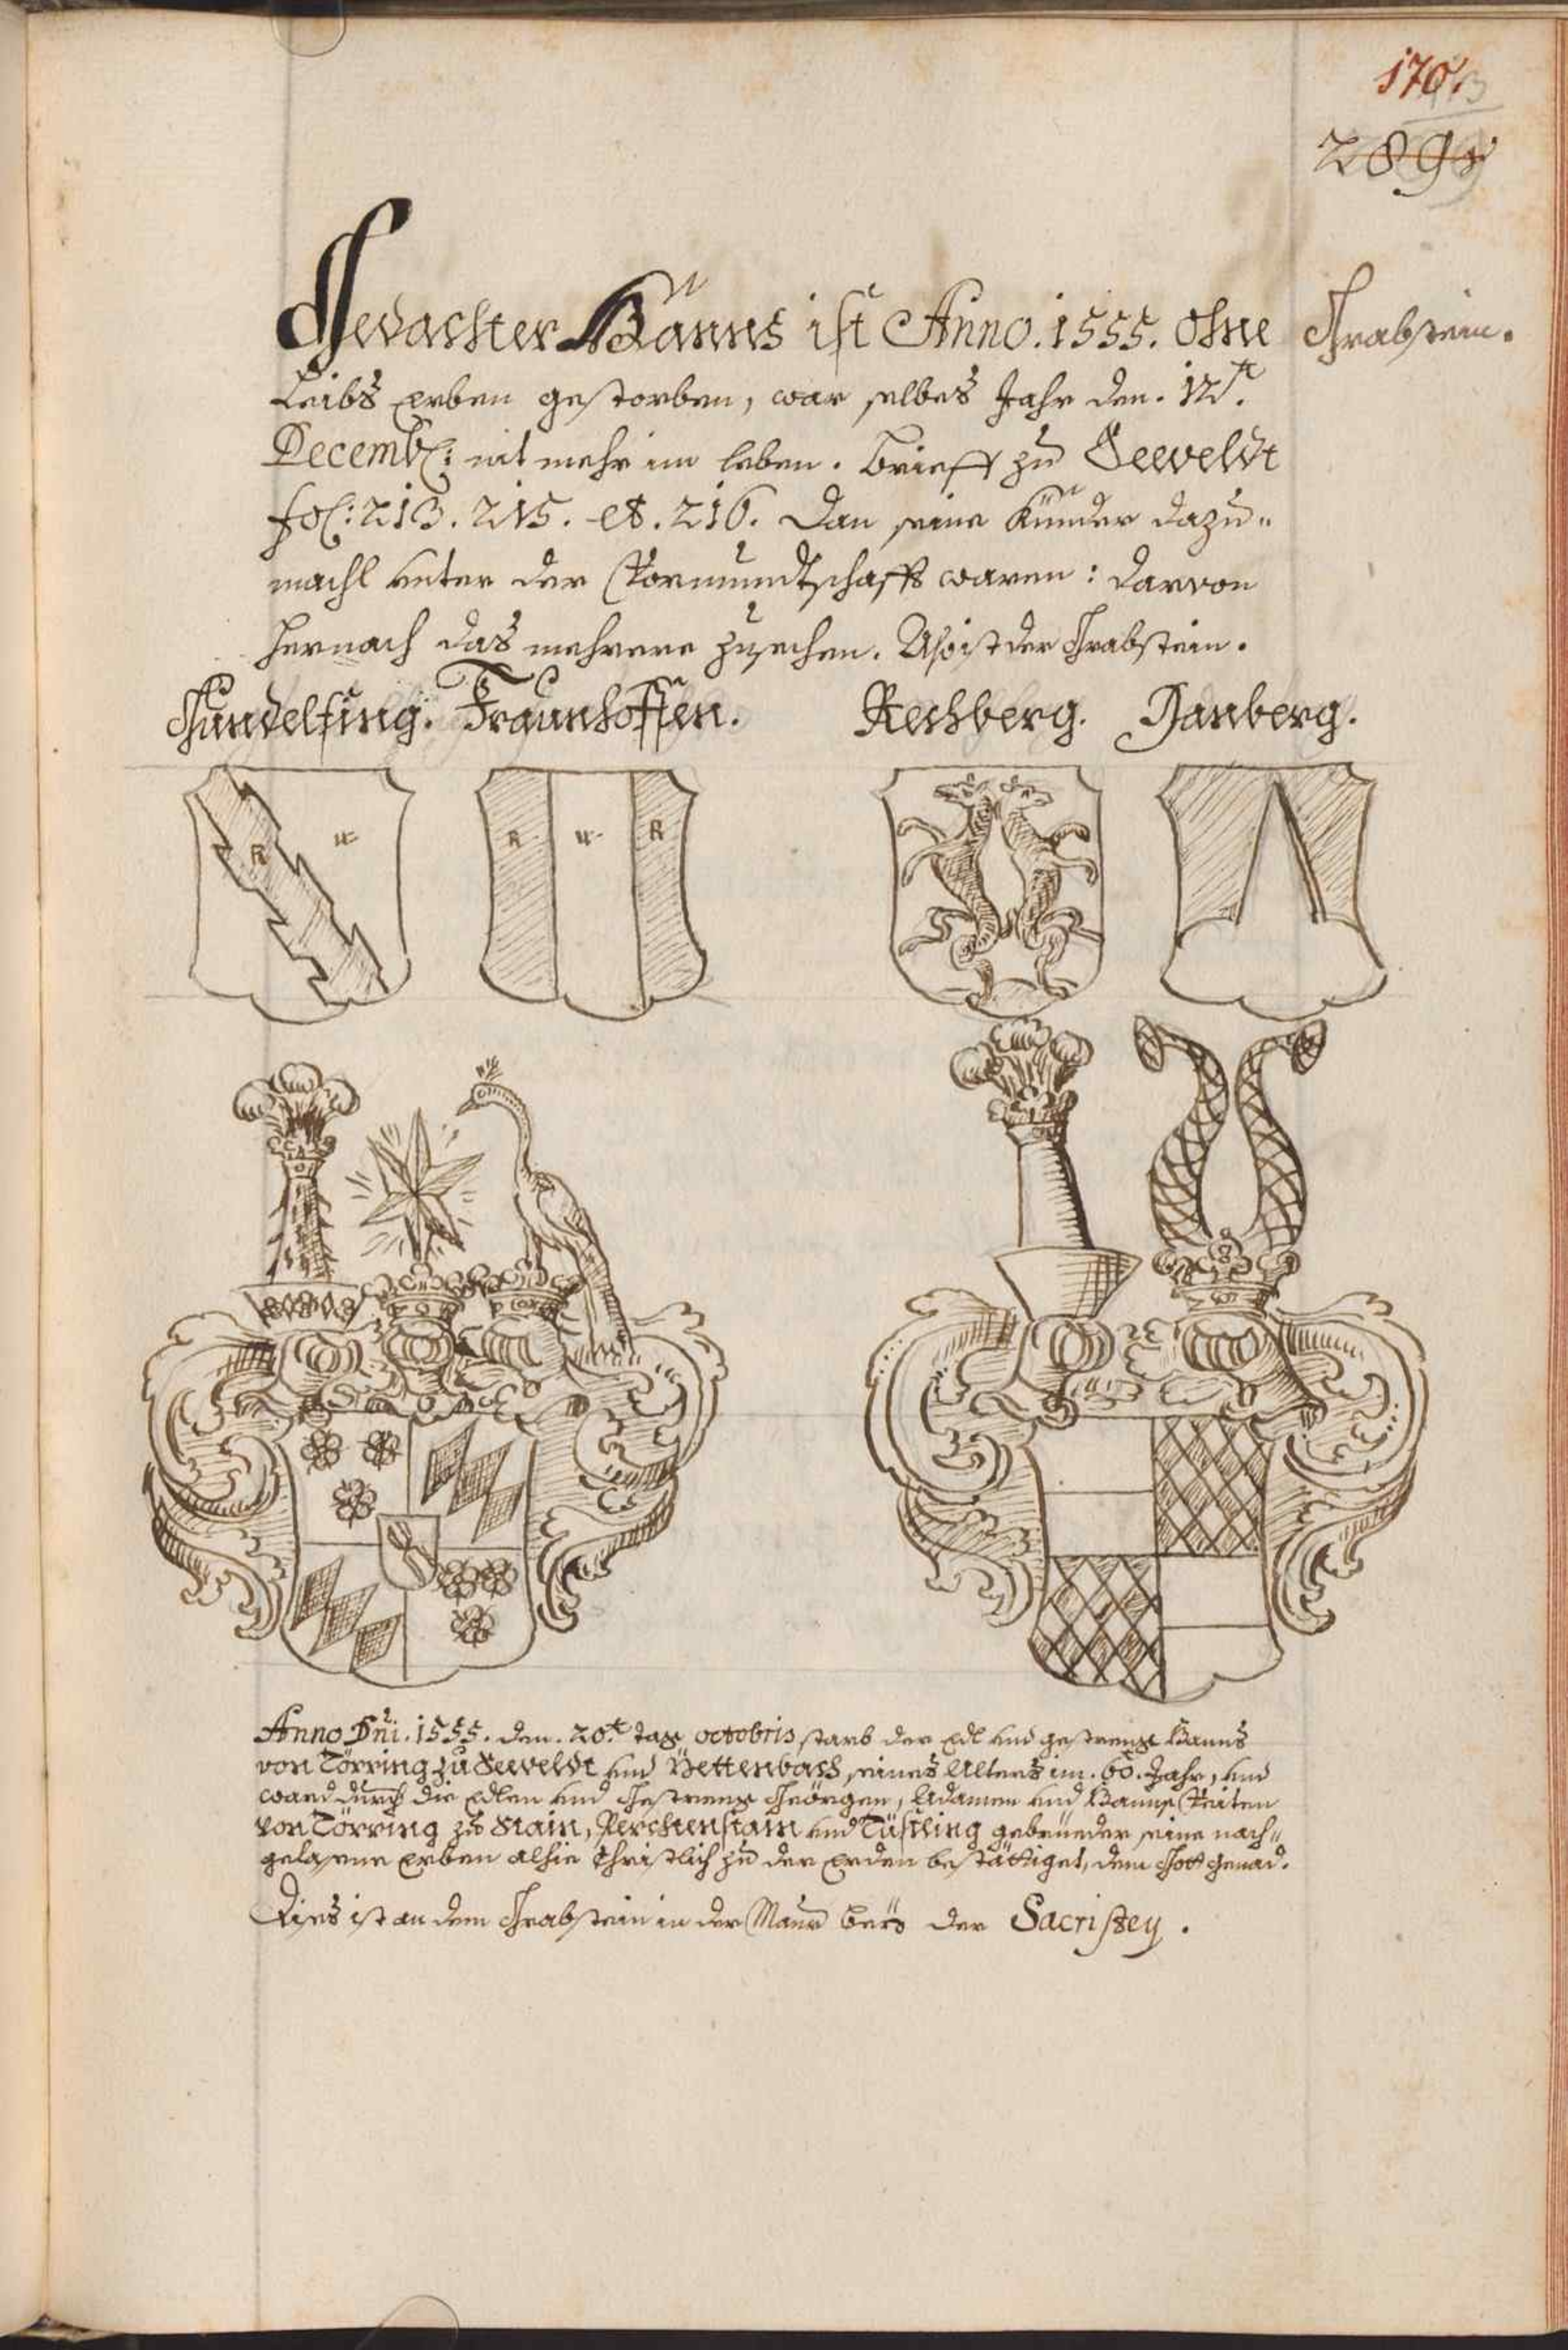 170.
289
Gedachter Hanns ist Anno. 1555. ohne
Grabstein.
Leibs erben gestorben, war selbes Jahr den. 12t.
Decemb: nit mehr im leben. brieff zu Seeveldt
fol: 213. 215. et. 216. Dan seine Künder dazu„
machl unter der Vormundtschafft waren: darvon
hernach das mehrere zusechen. Aso ist der Grabstein.
Gundelfing. Fraunhoffen. Rechberg. Hanberg.
R w R w R
Anno Dni. 1555. den. 20t tag octobris starb der Edl und gestreng Hanns
von Törring zu Seeveldt und Pettenbach, seines Alters im. 60. Jahr, und
ward durch die Edlen und Gestreng Geörgen, Adamen und Hanns Veiten
von Törring zu Stain, Perchenstain und Tüsling gebrueder seine nach„
gelasene Erben alhie Christlich zu der Erden bestättiget, dem Gott genad.
Dises ist an dem Grabstein in der Maur bey der Sacristey.